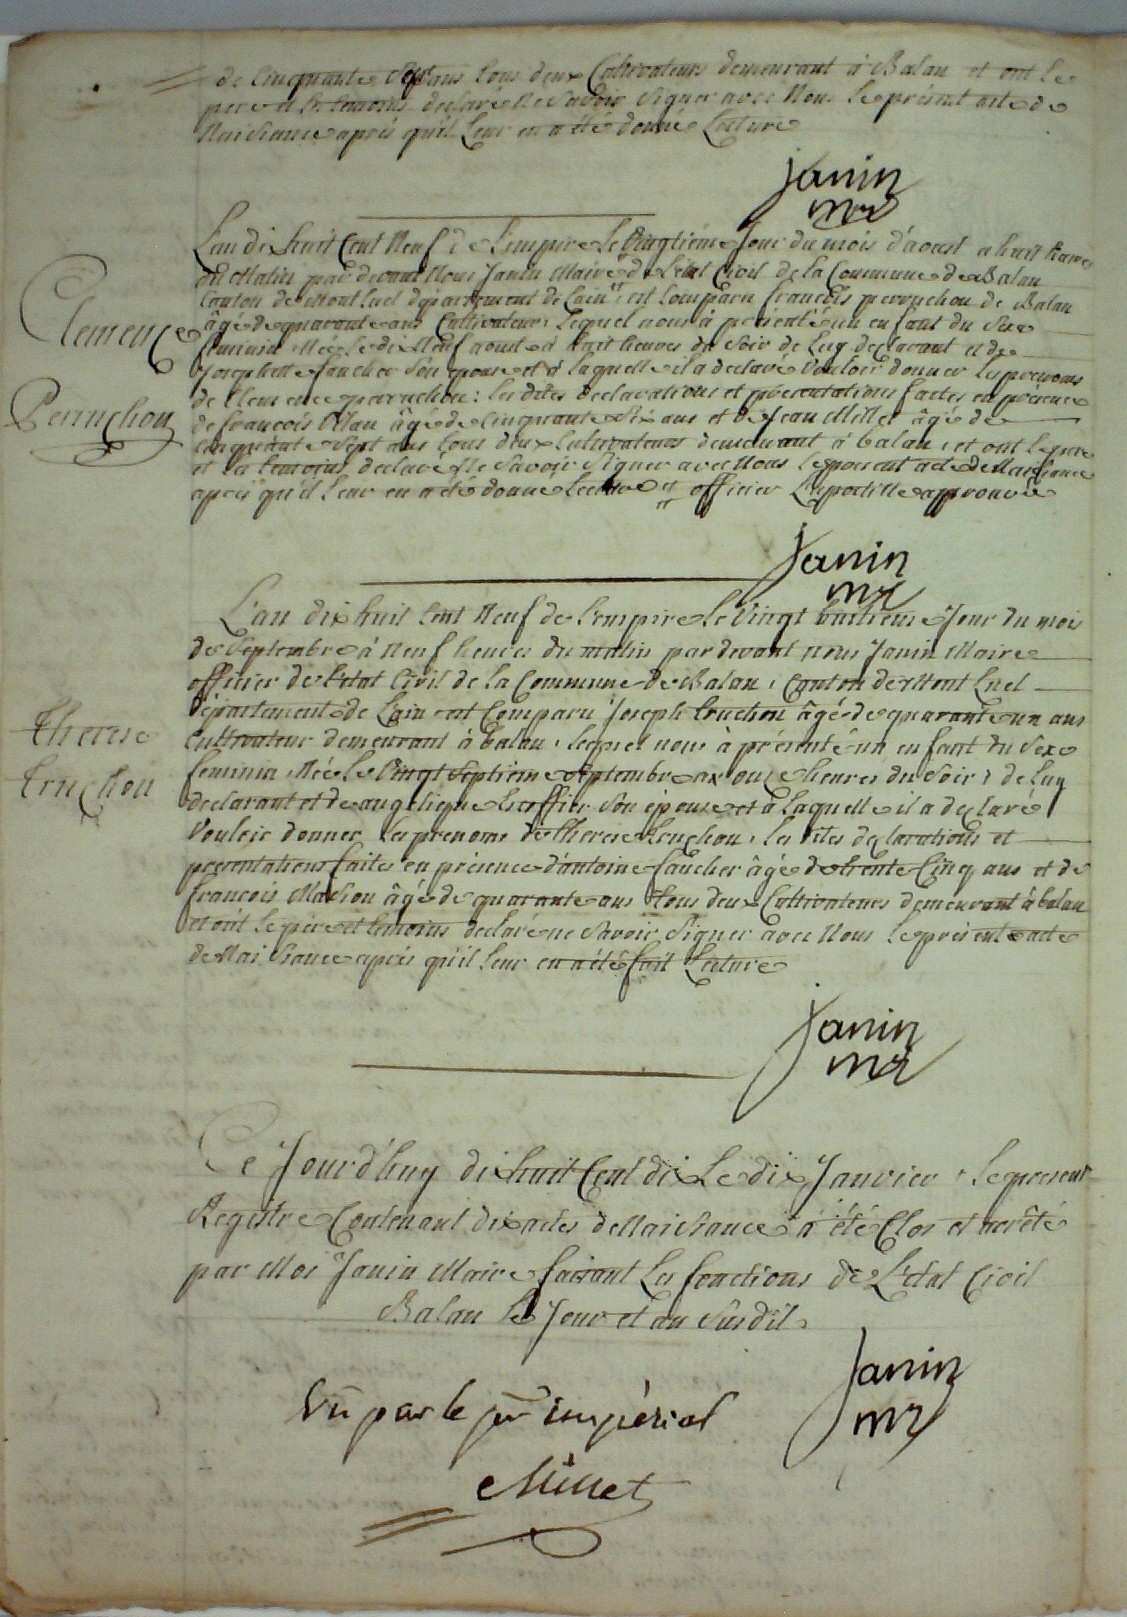 de Cinquante Sept ans tous deux Cultivateurs demeurant à Balan et ont le
pere et ls temoins declaré Ne Savoir Signer avec Nous le présent acte de
Naissance après qu'il Leur en a été donné Lecture
Janin
mr
L'an dixhuit Cent Neuf de L'empire le Vingtième Jour du mois d'aoust a huit heures
du Matin par devant Nous Janin Maire de L'état Civil de la Commune de Balan
Canton de Montluel departement de L'ain est Comparu françois perruchon de Balan
âgé de quarante ans Cultivateur, Lequel nous à présenté un enfant du Sexe
feminin Née le dix Neuf aoust à huit heures du Soir de Luy declarant et de
Josephette faucher Son epouse et à laquelle il a declaré Vouloir donner les prenoms
de Clemence perruchon : les dites declarations et présentations faites en présence
de françois âgé de cinquante Six ans et de Jean Millet âgé de
cinquante Sept ans tous deux Cultivateurs demeurant à balan, et ont le pere
et les temoins declaré Ne Savoir Signer avec Nous le present acte de Naissance
après qu'il leur en a été donné lecture officier L'apostille approuvée
Clemence
Perruchon
Janin
mr
L'an dixhuit Cent Neuf de L'empire Le Vingt huitième Jour du mois
de Septembre à Neuf heures du matin par devant nous Janin Maire
officier de L'etat Civil de la Commune de Balan, Canton de Mont Luel
département de L'ain est Comparu Joseph truchon âgé de quarante un ans
Cultivateur demeurant à balan, lequel nous à présenté un enfant du Sexe
feminin, Née Le Vingt Septieme Septembre a onze heures du Soir, de Luy
declarant et de angelique Escoffier Son épouse et à Laquelle il a declaré
Vouloir donner Les prenoms de therese truchon, les dites declarations et
présentations faites en présence d'antoine faucher âgé de trente Cinq ans et de
françois Marion âgé de quarante ans tous deux Cultivateurs demeurant à balan
et ont le père et temoins declaré ne Savoir Signer avec Nous le présent acte
de Naissance après qu'il leur en a été fait Lecture
therese
truchon
Janin
mr
Ce Jourd'huy dixhuit Cent dix Le dix Janvier, le present
Registre Contenant dix actes de Naissance à été Clos et arrêté
par Moi Janin Maire faisant Les fonctions de L'état Civil
Balan Le Jour et an Susdit
Janin
mr
Vu par le pr impérial
Millet